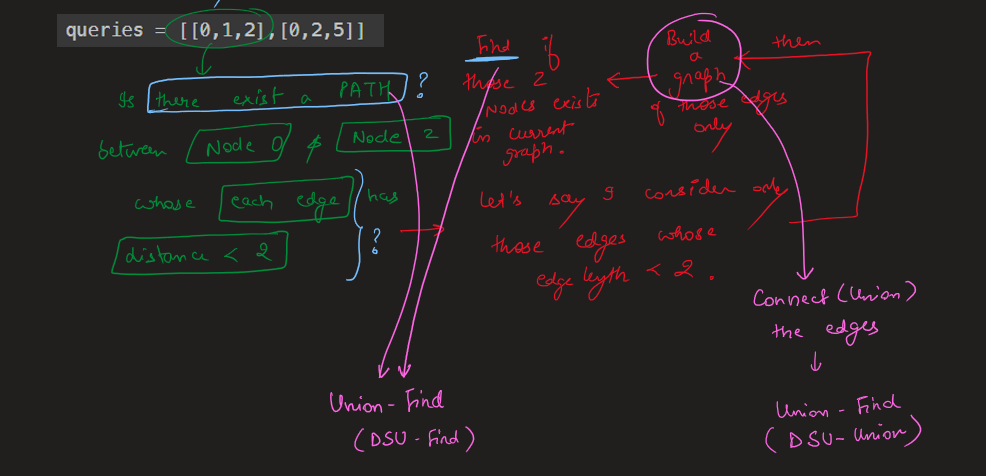 queries = [[0,1,2],[0,2,5]]
Is there exist a PATH ?
between Node 0 & Node 2
whose each edge has
distance < 2
?
Find if
those 2
Nodes exists
in current
graph.
Build
a
graph
of those edges
only
then
Let's say I consider only
those edges whose
edge length < 2.
Connect (Union)
the edges
Union - Find
(DSU - Find)
Union - Find
(DSU - Union)